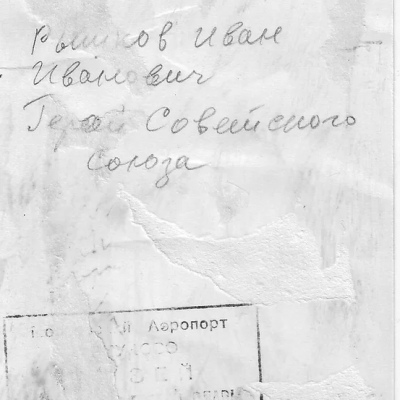 Рышков Иван
Иванович
Герой Советского
Союза
Аэропорт